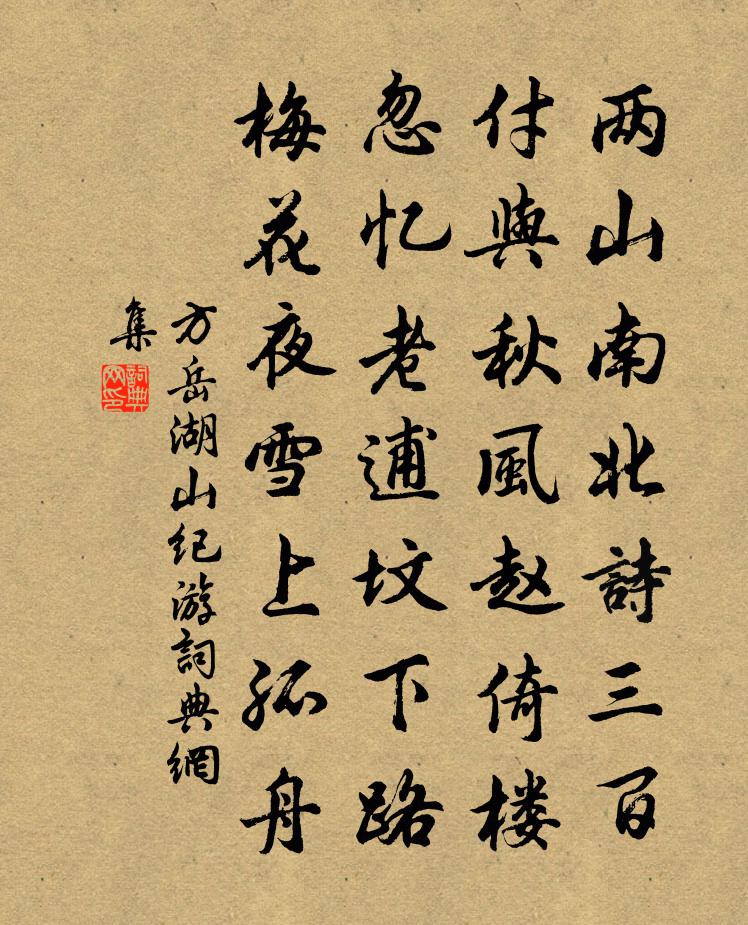 两山南北詩三百
付與秋風赵倚楼
忽忆老逋坟下路
梅花夜雪上孤舟
方岳湖山纪游詞典網
集
詞典
网印